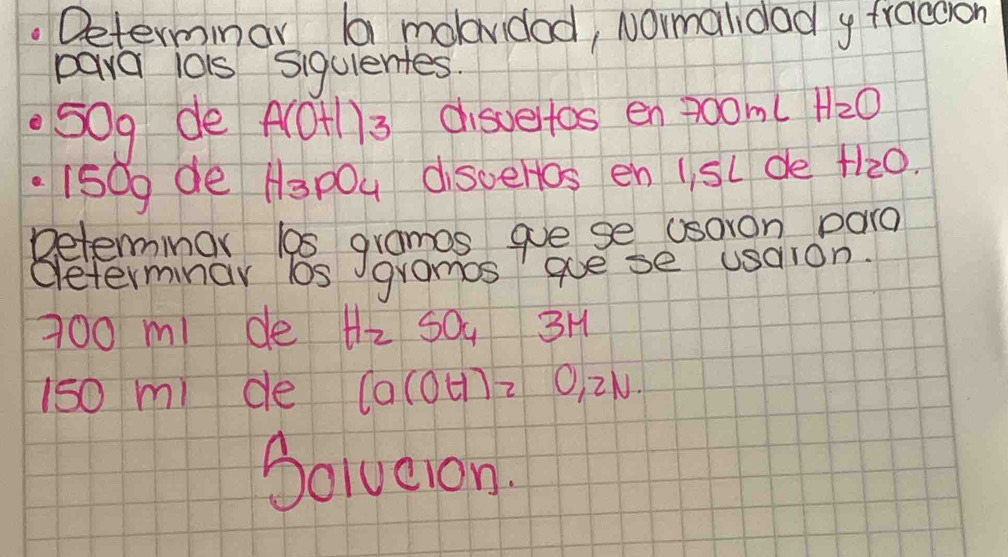 • Determinar la molaridad, Normalidad y fracción
para las siguientes.
• 50g de Al(OH)3 disueltos en 700mL H2O
• 150g de H3PO4 disueltos en 1,5L de H2O.
Determinar los gramos que se usaron para
determinar los gramos que se usaron.
700 ml de H2 SO4 3M
150 ml de Ca(OH)2 0,2N.
Solucion.